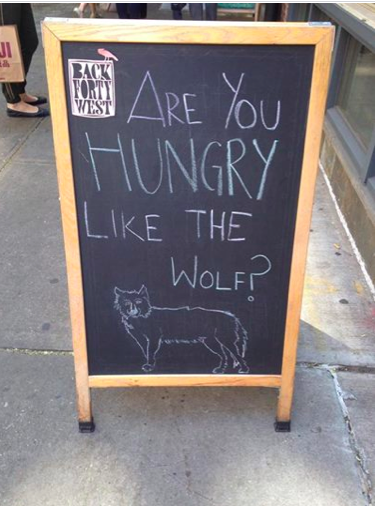 JI
BACK
FORTY
WEST
ARE YOU
HUNGRY
LIKE THE
WOLF?